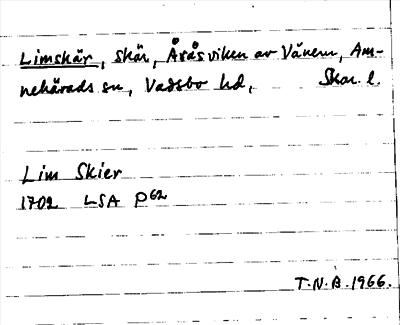 Limskär, skär, Åråsviken av Vänern, Am-
nehärads sn, Vadsbo hd, Skar. l.
Lim Skier
1702 LSA P62
T.N.B. 1966.